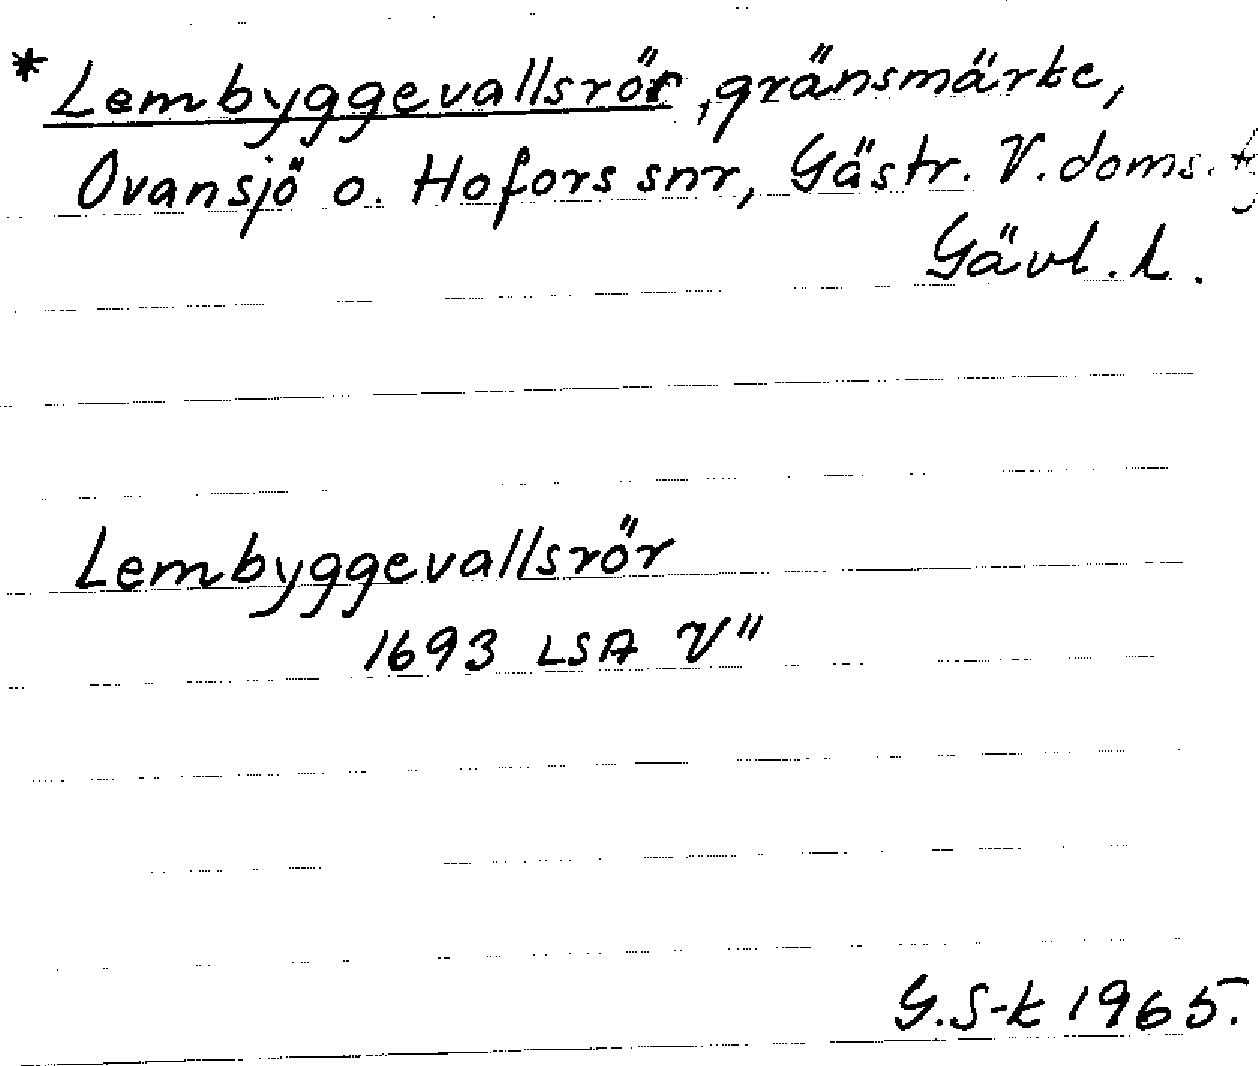 * Lembyggevallsrör, gränsmärke,
Ovansjö o. Hofors snr, Gästr. V. doms.
Gävl. l.
Lembyggevallsrör
1693 LSA V"
G.S-k 1965.